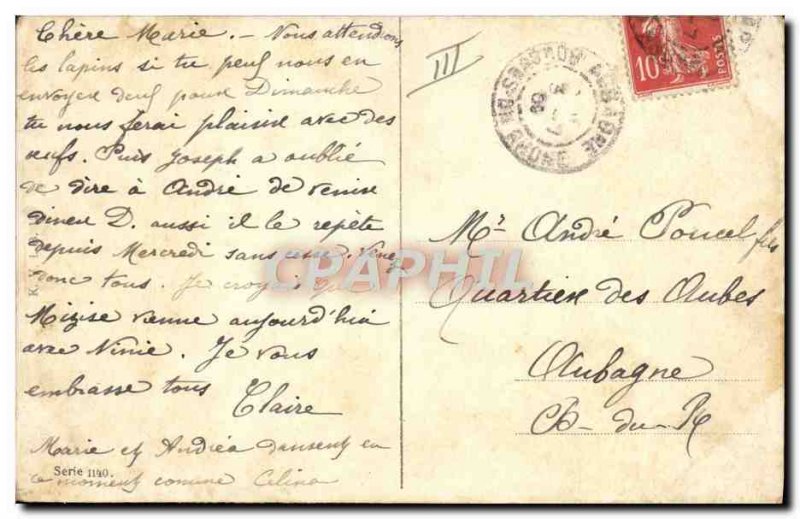 Chère Marie. – Nous attendions
les lapins si tu peus nous en
envoyer deus pour Dimanche
tu nous ferai plaisir avec des
œufs. Puis Joseph a oublié
de dire à André de venir
diner D. aussi il le repète
depuis Mercredi sans cesse. Venez
donc tous. Je croyais que
venue aujourd'hui
avec Ninie. Je vous
embrasse tous
Claire
Marie et Andréa dansent en
ce moment comme
Serie 1140.
III
10
POSTES
RHONE
Mr André Poucel fils
Quartier des Aubes
Aubagne
B. du R
CPAPHIL